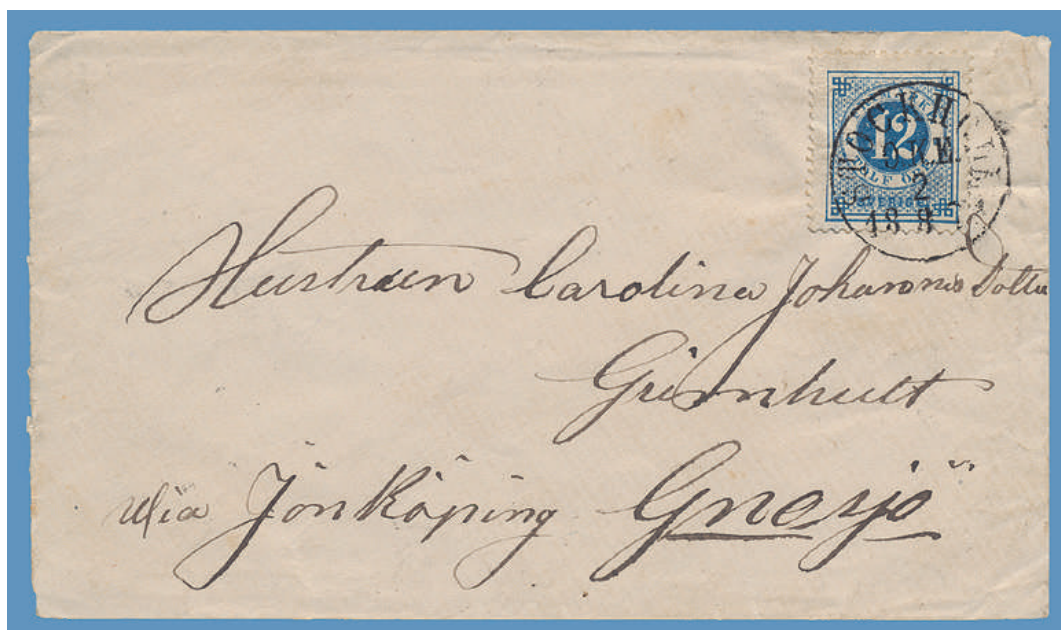 FRIMÄRKE
12
TOLF ÖRE
SVERIGE
STOCKHOLM
2
Hustrun Carolina Johannes Dotter
Grimhult
via Jönköping Gnosjö